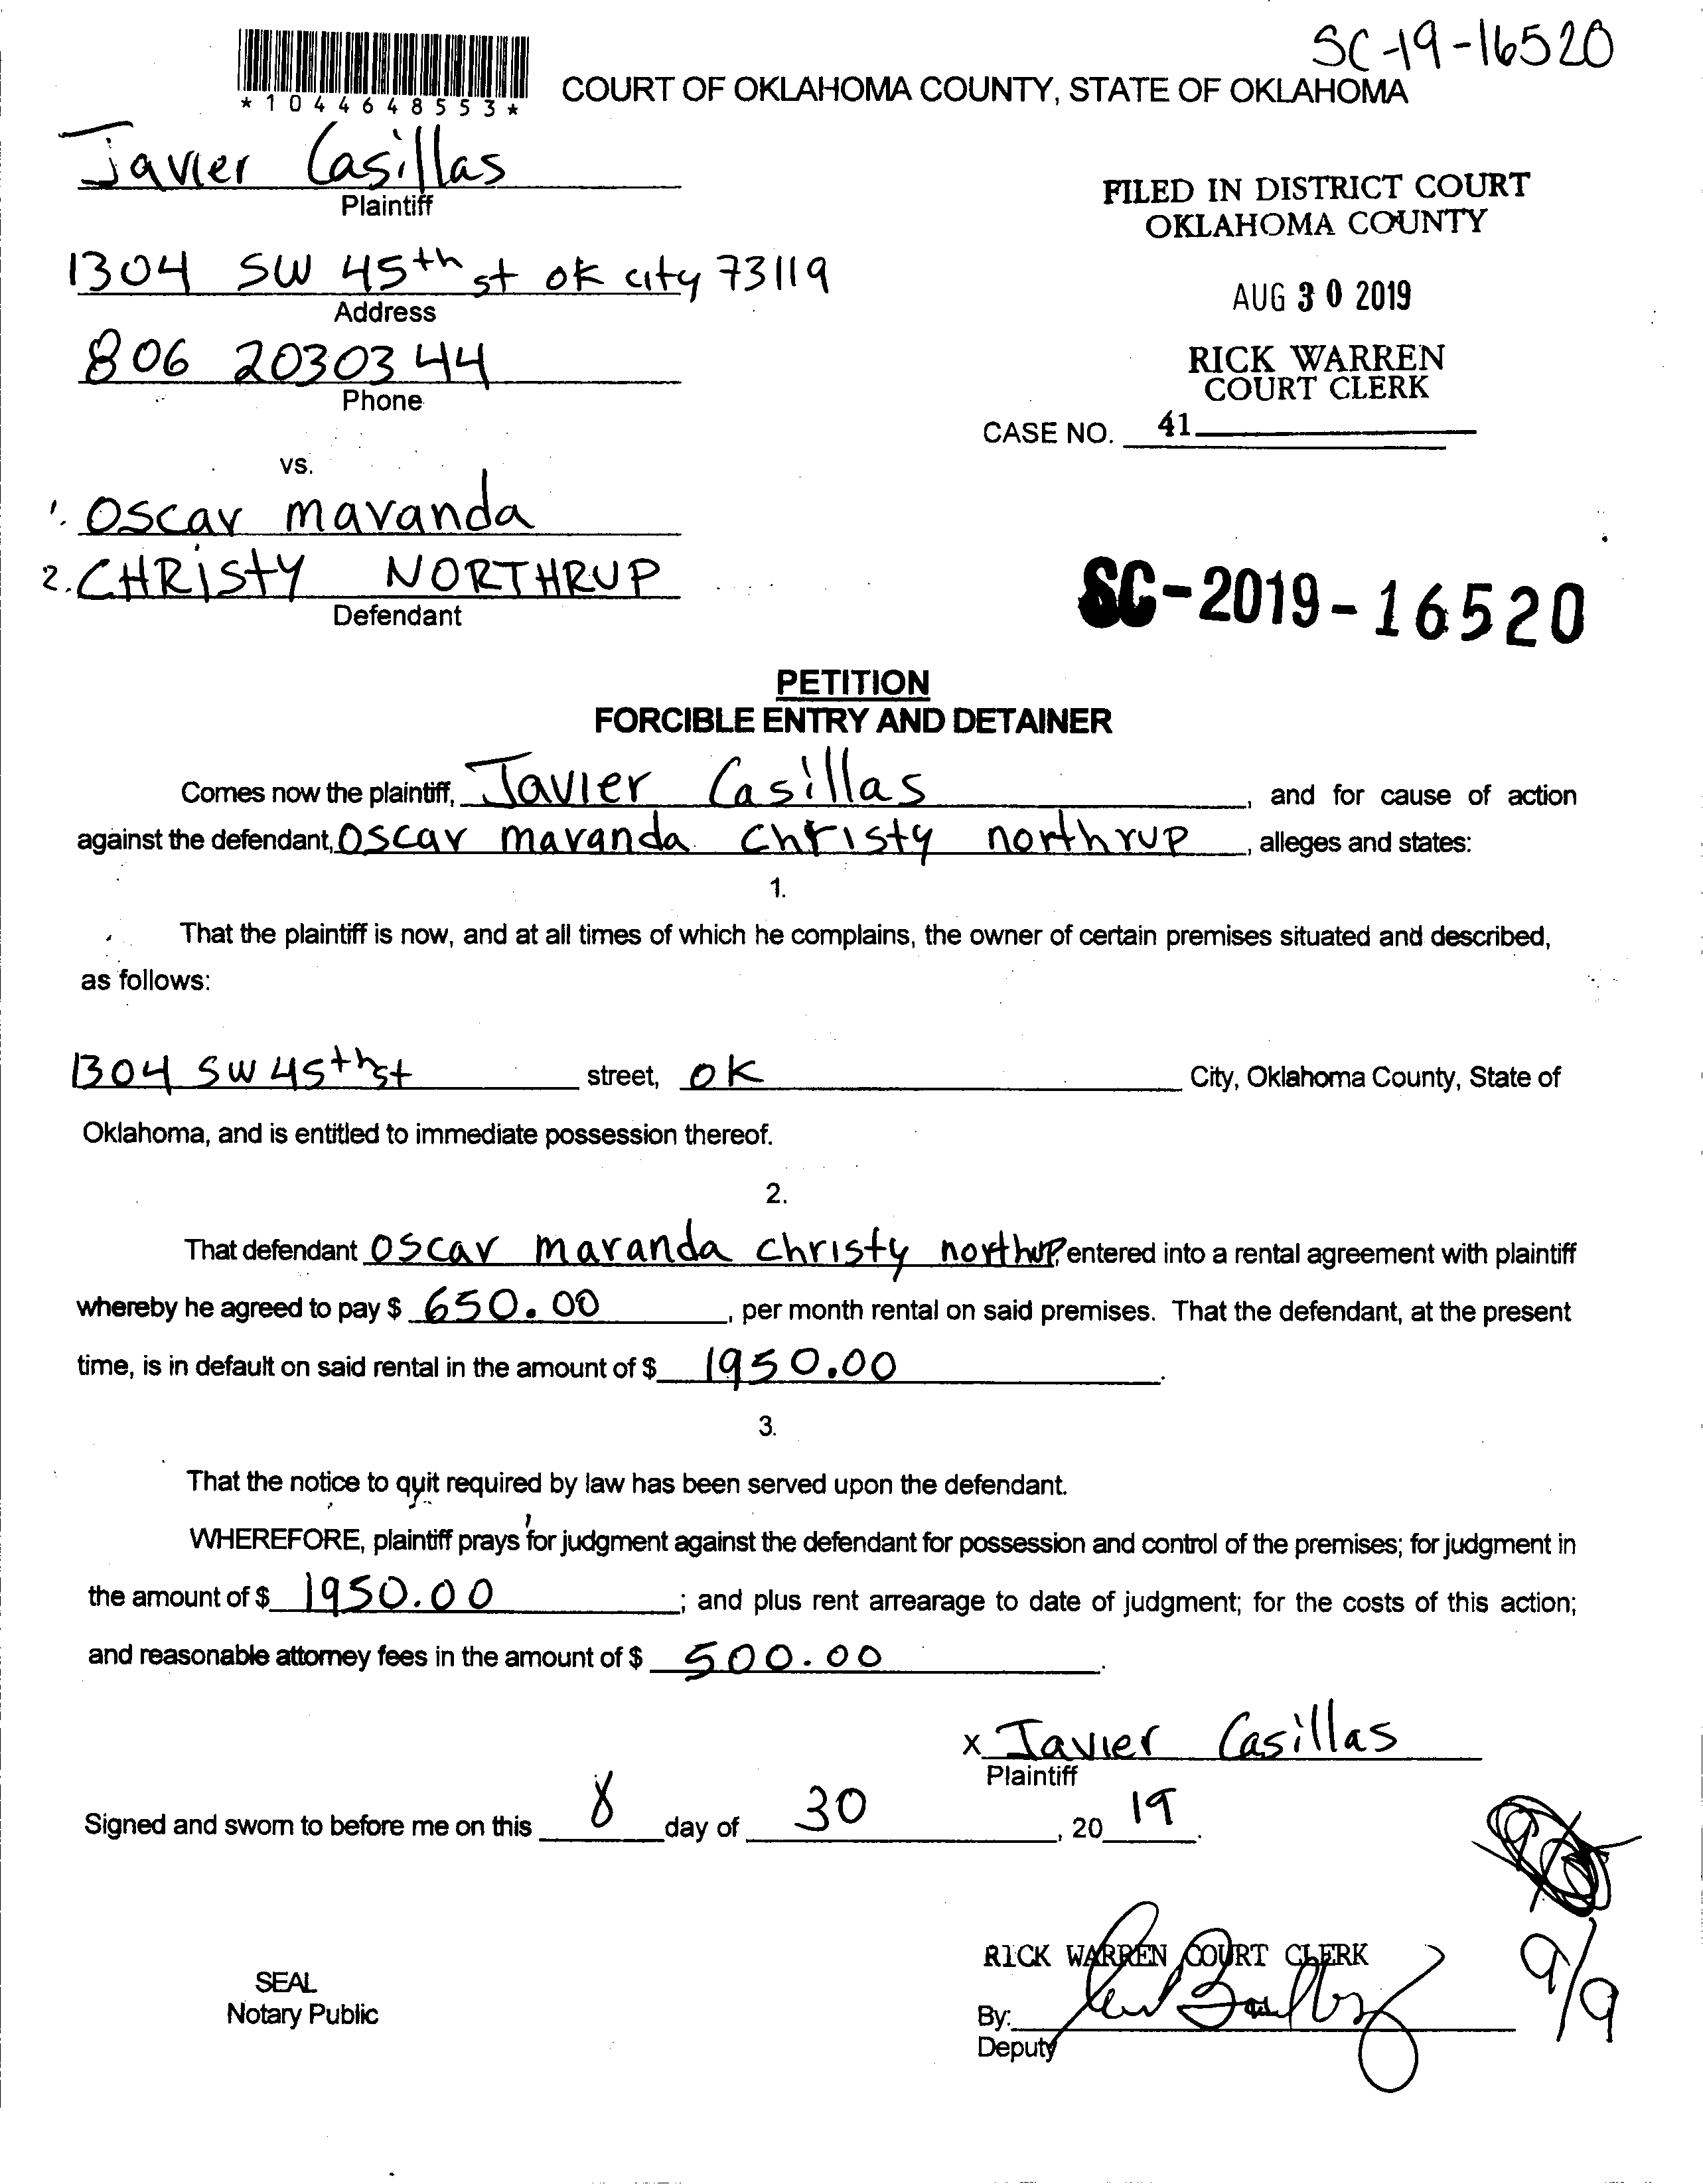 SC-19-16520
*1044648553*
COURT OF OKLAHOMA COUNTY, STATE OF OKLAHOMA
Javier Casillas
Plaintiff
FILED IN DISTRICT COURT
OKLAHOMA COUNTY
1304 SW 45th st ok city 73119
Address
AUG 30 2019
806 2030344
Phone
RICK WARREN
COURT CLERK
CASE NO. 41
vs.
1. Oscar maranda
2. CHRISTY NORTHRUP
Defendant
SC-2019-16520
PETITION
FORCIBLE ENTRY AND DETAINER
Comes now the plaintiff, Javier Casillas, and for cause of action
against the defendant, Oscar maranda christy northrup, alleges and states:
1.
That the plaintiff is now, and at all times of which he complains, the owner of certain premises situated and described,
as follows:
1304 SW 45th st street, OK City, Oklahoma County, State of
Oklahoma, and is entitled to immediate possession thereof.
2.
That defendant Oscar maranda christy northrup, entered into a rental agreement with plaintiff
whereby he agreed to pay $ 650.00, per month rental on said premises. That the defendant, at the present
time, is in default on said rental in the amount of $ 1950.00.
3.
That the notice to quit required by law has been served upon the defendant.
WHEREFORE, plaintiff prays for judgment against the defendant for possession and control of the premises; for judgment in
the amount of $ 1950.00; and plus rent arrearage to date of judgment; for the costs of this action;
and reasonable attorney fees in the amount of $ 500.00.
x Javier Casillas
Plaintiff
Signed and sworn to before me on this 8 day of 30, 2019.
RICK WARREN COURT CLERK
9/9
SEAL
Notary Public
By:
Deputy